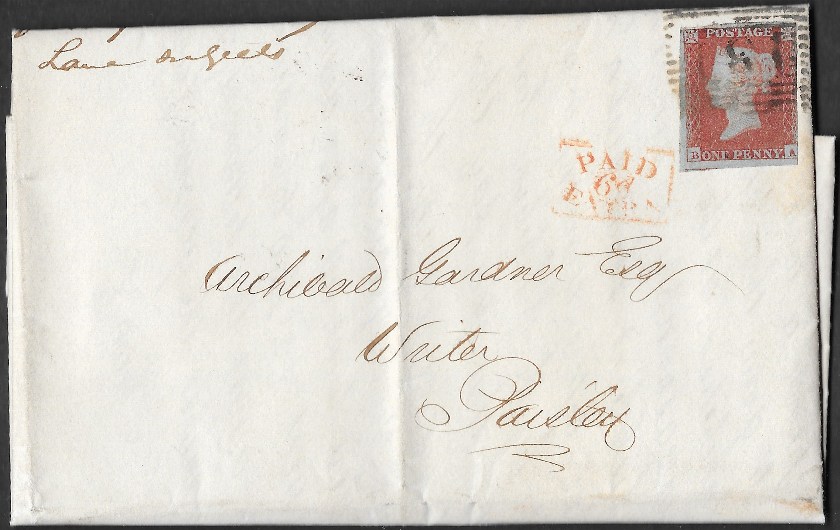 Late on Geeld
POSTAGE
B ONE PENNY A
PAID
6d
EXTRA
Archibald Gardner Esq
Writer
Paisley